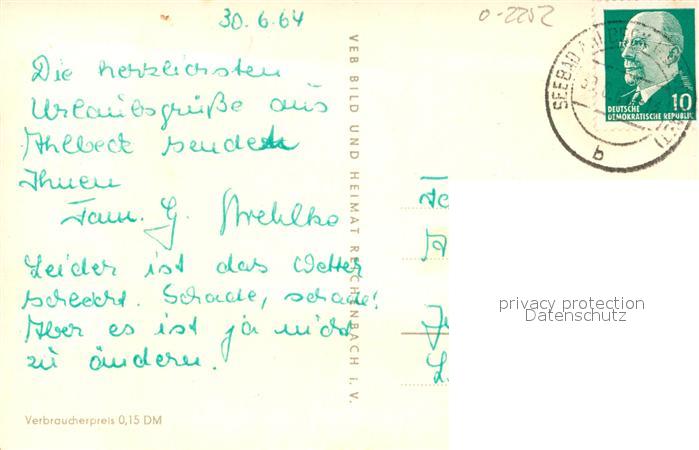 30.6.64
0-2252
Die herzlichsten
Urlaubsgrüße aus
Ahlbeck senden
Ihnen
Fam. G. Strehlko
Leider ist das Wetter
schlecht. Schade, schade!
Aber es ist ja nicht
zu ändern.
Verbraucherpreis 0,15 DM
VEB BILD UND HEIMAT REICHENBACH I. V.
SEEBAD AHLBECK
b
10
DEUTSCHE
DEMOKRATISCHE REPUBLIK
privacy protection
Datenschutz